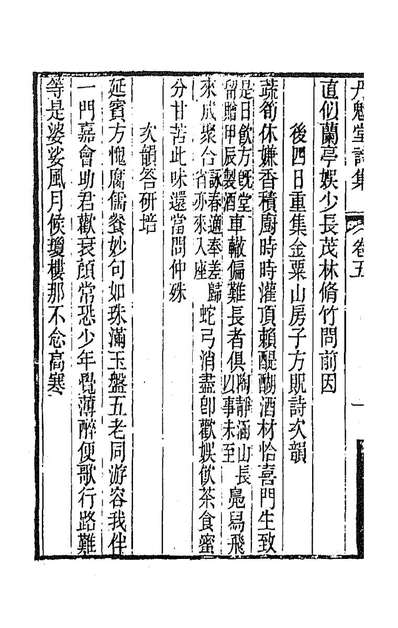 丹魁堂詩集 卷五 一
直似蘭亭娛少長茂林脩竹問前因
後四日重集金粟山房子方既詩次韻
蔬筍休嫌香積廚時時灌頂賴醍醐酒材恰喜門生致
是日飲方旣堂留贈甲辰製酒車轍偏難長者俱陶靜涵山長以事未至鳧舄飛
來成聚合詠春適奉差歸省亦來入座蛇弓消盡卽歡娛飲茶食蜜
分甘苦此味還當問仲殊
次韻答研培
延賓方愧腐儒餐妙句如珠滿玉盤五老同游容我伴
一門嘉會助君歡衰顏常恐少年覺薄醉便歌行路難
等是婆娑風月候瓊樓那不念高寒